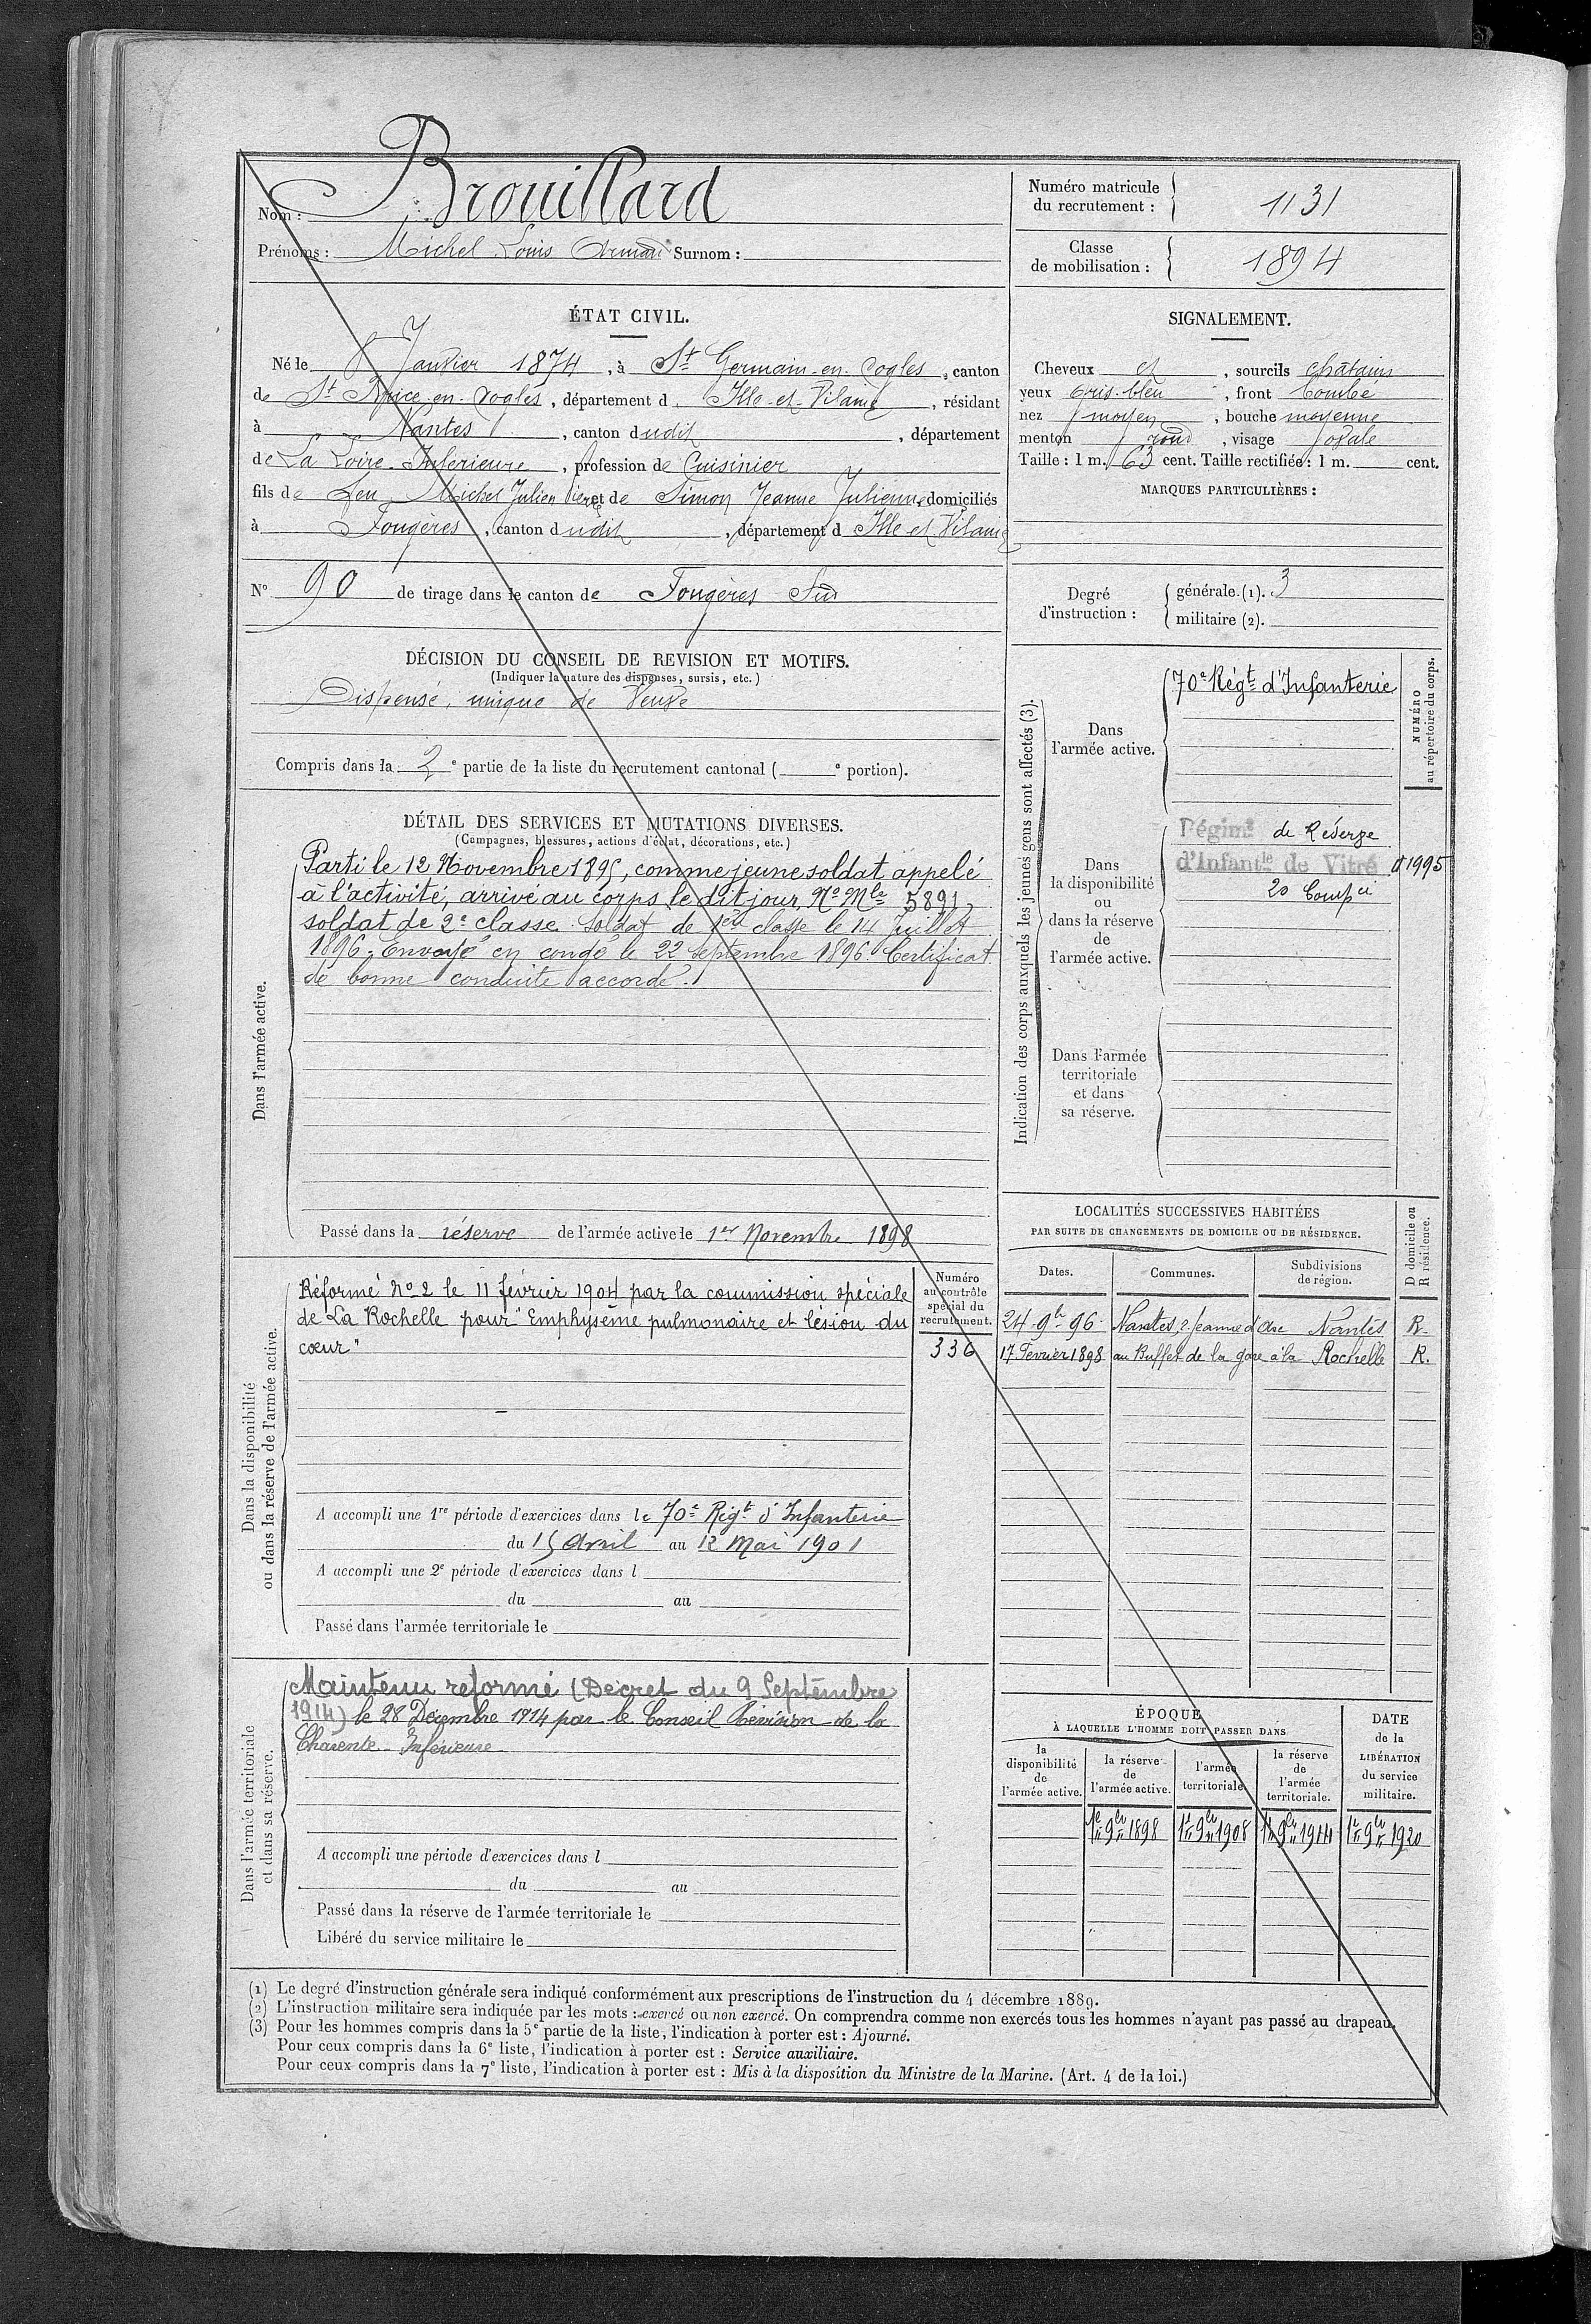 Nom : Brouillard
Prénoms : Michel Louis Armand Surnom :
Numéro matricule du recrutement : 1131
Classe de mobilisation : 1894
ÉTAT CIVIL.
Né le 8 Janvier 1874, à St Germain-en-Cogles, canton
de St Brice-en-Cogles, département d Ille-et-Vilaine, résidant
à Nantes, canton dudit, département
de La Loire-Inférieure, profession de Cuisinier
fils de feu Michel Julien et de Simon Jeanne Julienne domiciliés
à Fougères, canton dudit, département d Ille et Vilaine
N° 90 de tirage dans le canton de Fougères Sud
SIGNALEMENT.
Cheveux et, sourcils châtains
yeux gris-bleu, front bombé
nez moyen, bouche moyenne
menton rond, visage ovale
Taille : 1 m. 63 cent. Taille rectifiée : 1 m. cent.
MARQUES PARTICULIÈRES :
Degré d'instruction :
générale (1). 3
militaire (2).
DÉCISION DU CONSEIL DE REVISION ET MOTIFS.
(Indiquer la nature des dispenses, sursis, etc.)
Dispensé, unique de Veuve
Compris dans la 2e partie de la liste du recrutement cantonal ( e portion).
DÉTAIL DES SERVICES ET MUTATIONS DIVERSES.
(Campagnes, blessures, actions d'éclat, décorations, etc.)
Dans l'armée active.
Parti le 12 Novembre 1895, comme jeune soldat appelé
à l'activité, arrivé au corps le dit jour, No Mle 5891,
soldat de 2e classe. Soldat de 1ere classe le 14 Juillet
1896. Envoyé en congé le 22 septembre 1896. Certificat
de bonne conduite accordé.
Passé dans la réserve de l'armée active le 1er Novembre 1898
Indication des corps auxquels les jeunes gens sont affectés (3).
NUMÉRO au répertoire du corps.
Dans l'armée active.
70e Régt d'Infanterie
Dans la disponibilité ou dans la réserve de l'armée active.
Régimt de Réserve
d'Infantie de Vitré
1995
20 Compie
Dans l'armée territoriale et dans sa réserve.
Dans la disponibilité ou dans la réserve de l'armée active.
Réformé No 2 le 11 février 1904 par la commission spéciale
de La Rochelle pour "Emphysème pulmonaire et lésion du
cœur"
Numéro au contrôle spécial du recrutement.
336
A accompli une 1re période d'exercices dans le 70e Régt d'Infanterie
du 15 Avril au 12 Mai 1901
A accompli une 2e période d'exercices dans l
du au
Passé dans l'armée territoriale le
LOCALITÉS SUCCESSIVES HABITÉES
PAR SUITE DE CHANGEMENTS DE DOMICILE OU DE RÉSIDENCE.
D domicile ou R résidence.
Dates. Communes. Subdivisions de région.
24 9bre 96 Nantes, r. Jeanne d'Arc Nantes R.
17 Fevrier 1898 au Buffet de la gare à la Rochelle R.
Dans l'armée territoriale et dans sa réserve.
Maintenu réformé (Décret du 9 Septembre
1914) le 28 Décembre 1914 par le Conseil Révision de la
Charente-Inférieure
A accompli une période d'exercices dans l
du au
Passé dans la réserve de l'armée territoriale le
Libéré du service militaire le
ÉPOQUE
À LAQUELLE L'HOMME DOIT PASSER DANS
DATE de la LIBÉRATION du service militaire.
la disponibilité de l'armée active.
la réserve de l'armée active.
l'armée territoriale
la réserve de l'armée territoriale.
1er 9bre 1898 1er 9bre 1908 1er 9bre 1914 1er 9bre 1920
(1) Le degré d'instruction générale sera indiqué conformément aux prescriptions de l'instruction du 4 décembre 1889.
(2) L'instruction militaire sera indiquée par les mots : exercé ou non exercé. On comprendra comme non exercés tous les hommes n'ayant pas passé au drapeau.
(3) Pour les hommes compris dans la 5e partie de la liste, l'indication à porter est : Ajourné.
Pour ceux compris dans la 6e liste, l'indication à porter est : Service auxiliaire.
Pour ceux compris dans la 7e liste, l'indication à porter est : Mis à la disposition du Ministre de la Marine. (Art. 4 de la loi.)